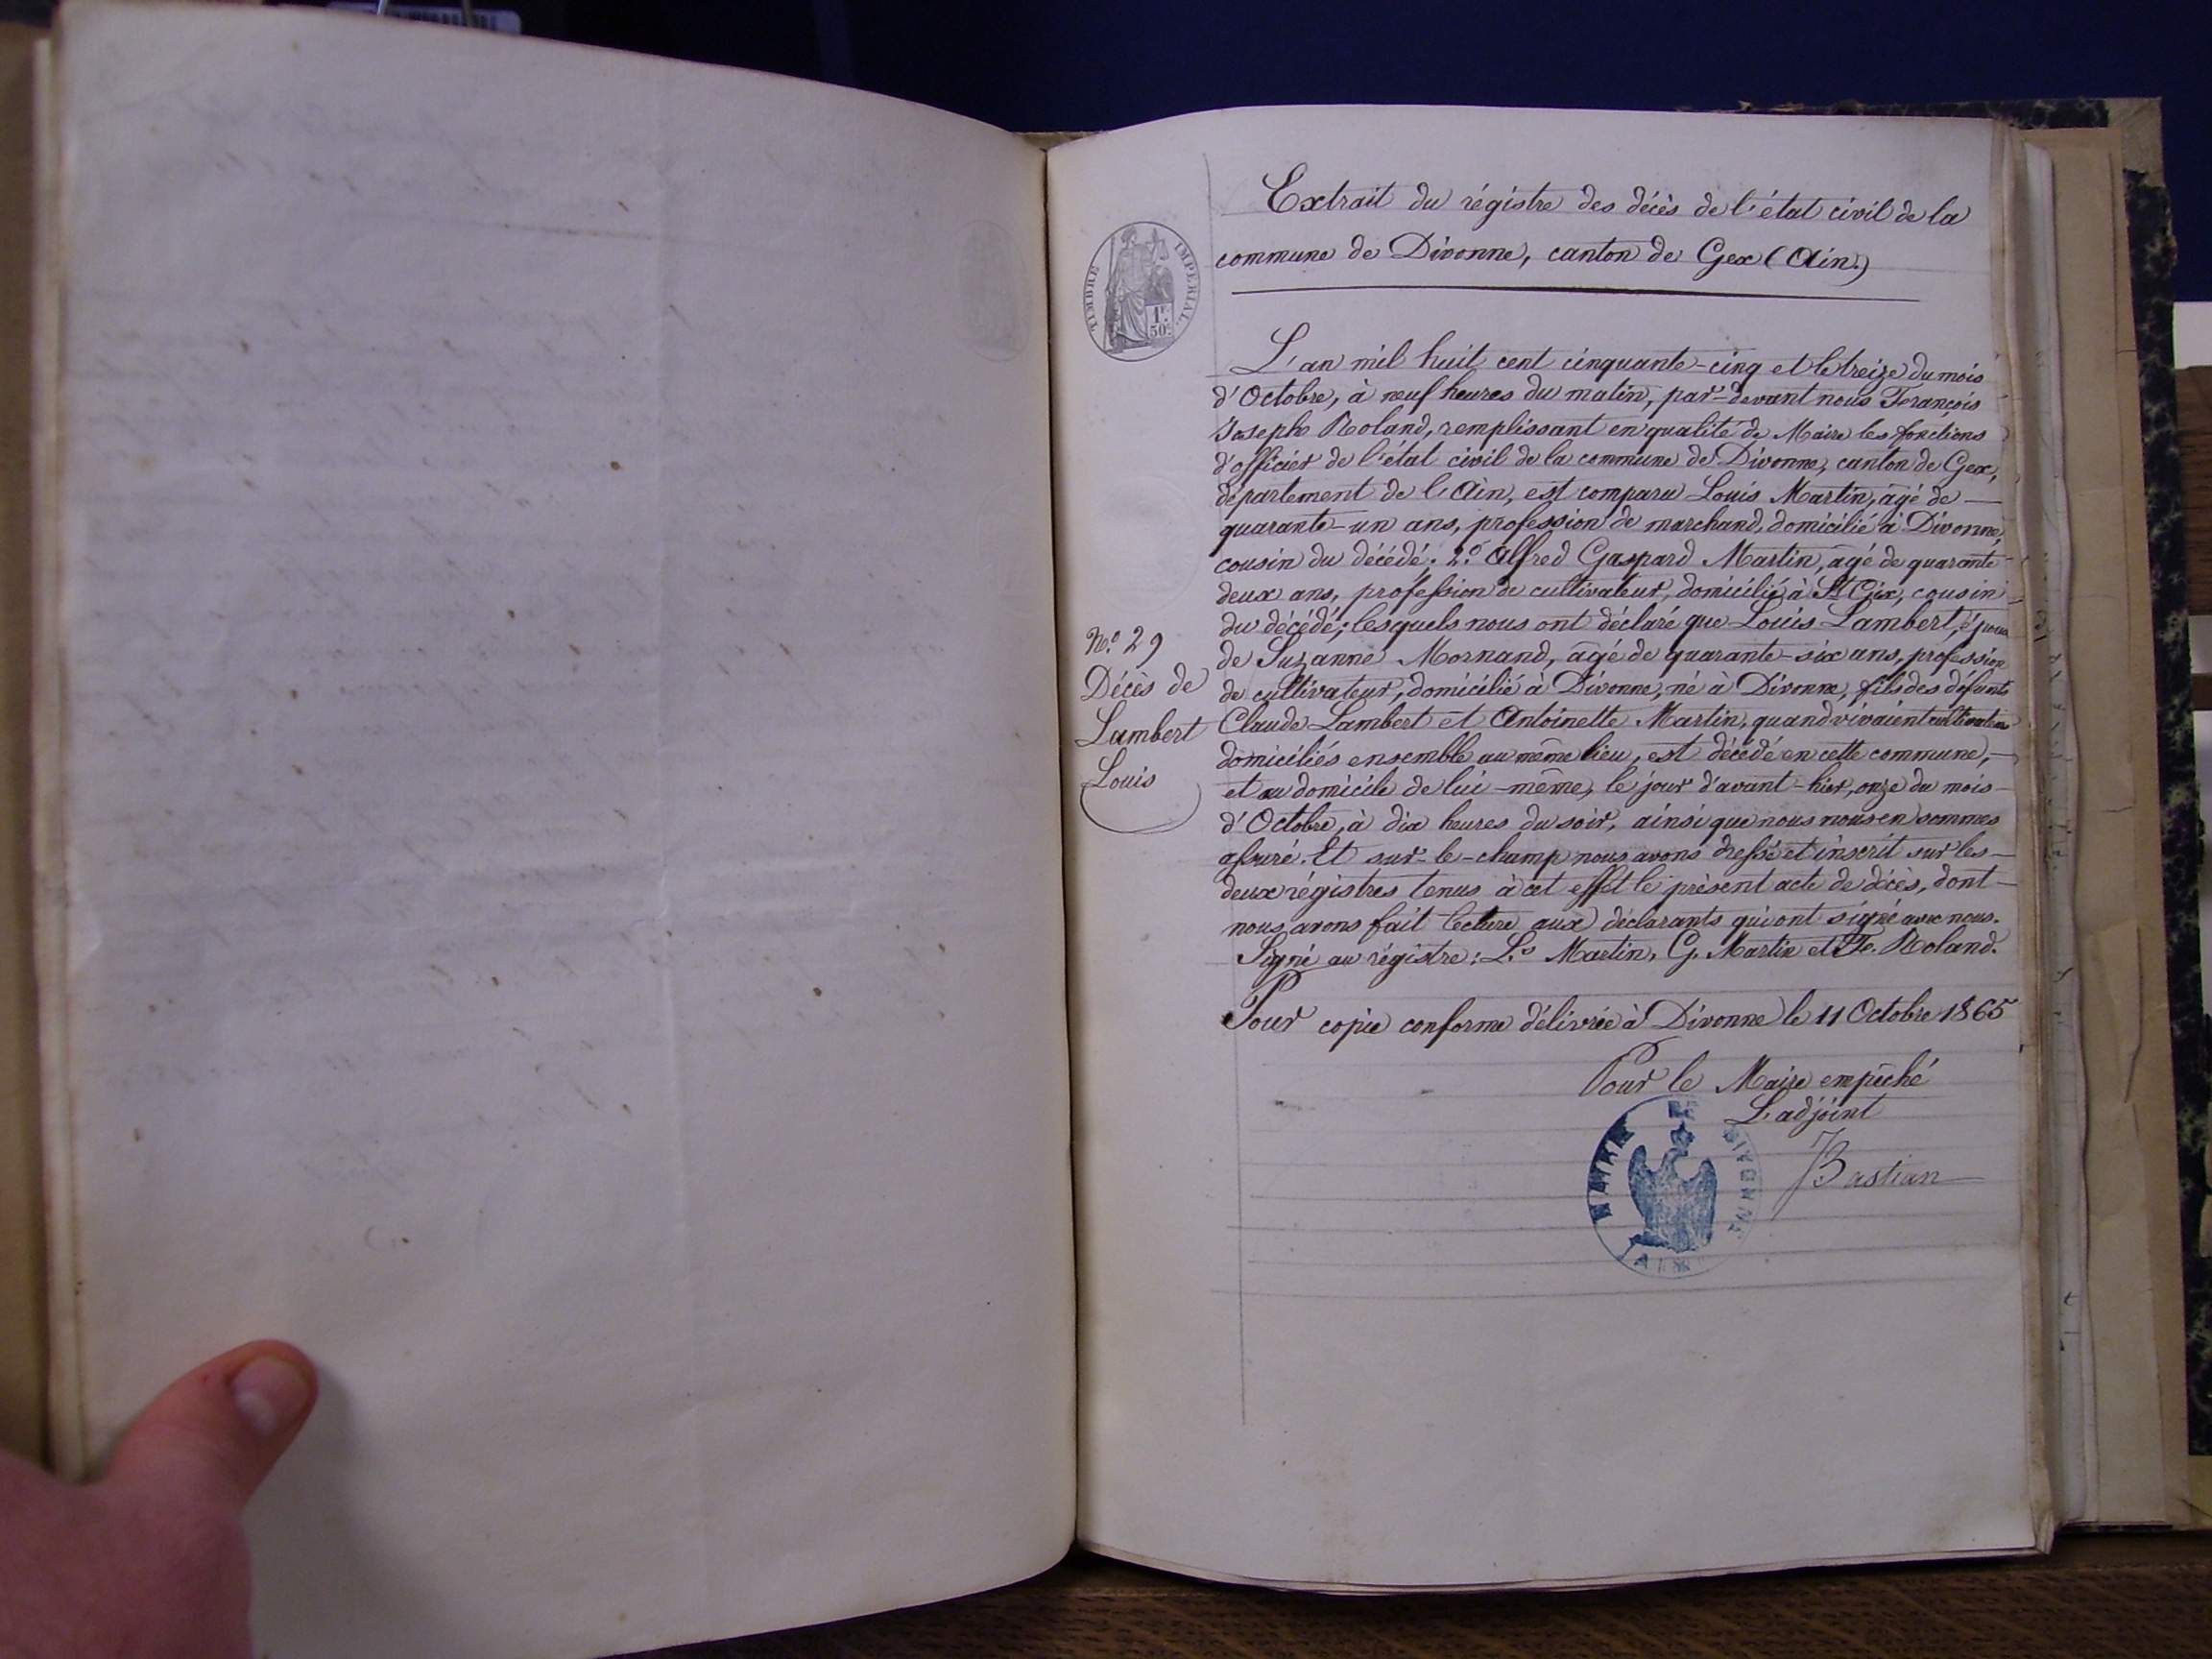 Extrait du régistre des décès de l'état civil de la
commune de Divonne, canton de Gex (Ain.)
TIMBRE IMPERIAL
1F.
50c
L'an mil huit cent cinquante-cinq et le treize du mois
d'Octobre, à neuf heures du matin, par-devant nous François
Joseph Roland, remplissant en qualité de Maire les fonctions
d'officier de l'état civil de la commune de Divonne, canton de Gex,
département de l'Ain, est comparu Louis Martin, âgé de —
quarante-un ans, profession de marchand, domicilié à Divonne,
cousin du décédé; 2.º Alfred Gaspard Martin, âgé de quarante-
deux ans, profession de cultivateur, domicilié à St Gix, cousin
du décédé; lesquels nous ont déclaré que Louis Lambert, époux
de Suzanne Mornand, âgé de quarante-six ans, profession
de cultivateur, domicilié à Divonne, né à Divonne, fils des défunts
Claude Lambert et Antoinette Martin, quand vivaient cultivateurs
domiciliés ensemble au même lieu, est décédé en cette commune, —
et au domicile de lui-même, le jour d'avant-hier, onze du mois —
d'Octobre, à dix heures du soir, ainsi que nous nous en sommes
assuré. Et sur-le-champ nous avons dressé et inscrit sur les —
deux régistres tenus à cet effet le présent acte de décès, dont —
nous avons fait lecture aux déclarants qui ont signé avec nous.
Signé au régistre: L.s Martin, G. Martin et Fs. Roland.
Nº. 29
Décès de
Lambert
Louis
Pour copie conforme délivrée à Divonne le 11 Octobre 1865
Pour le Maire empêché
L'adjoint
Bastian
MAIRIE DE
AIN